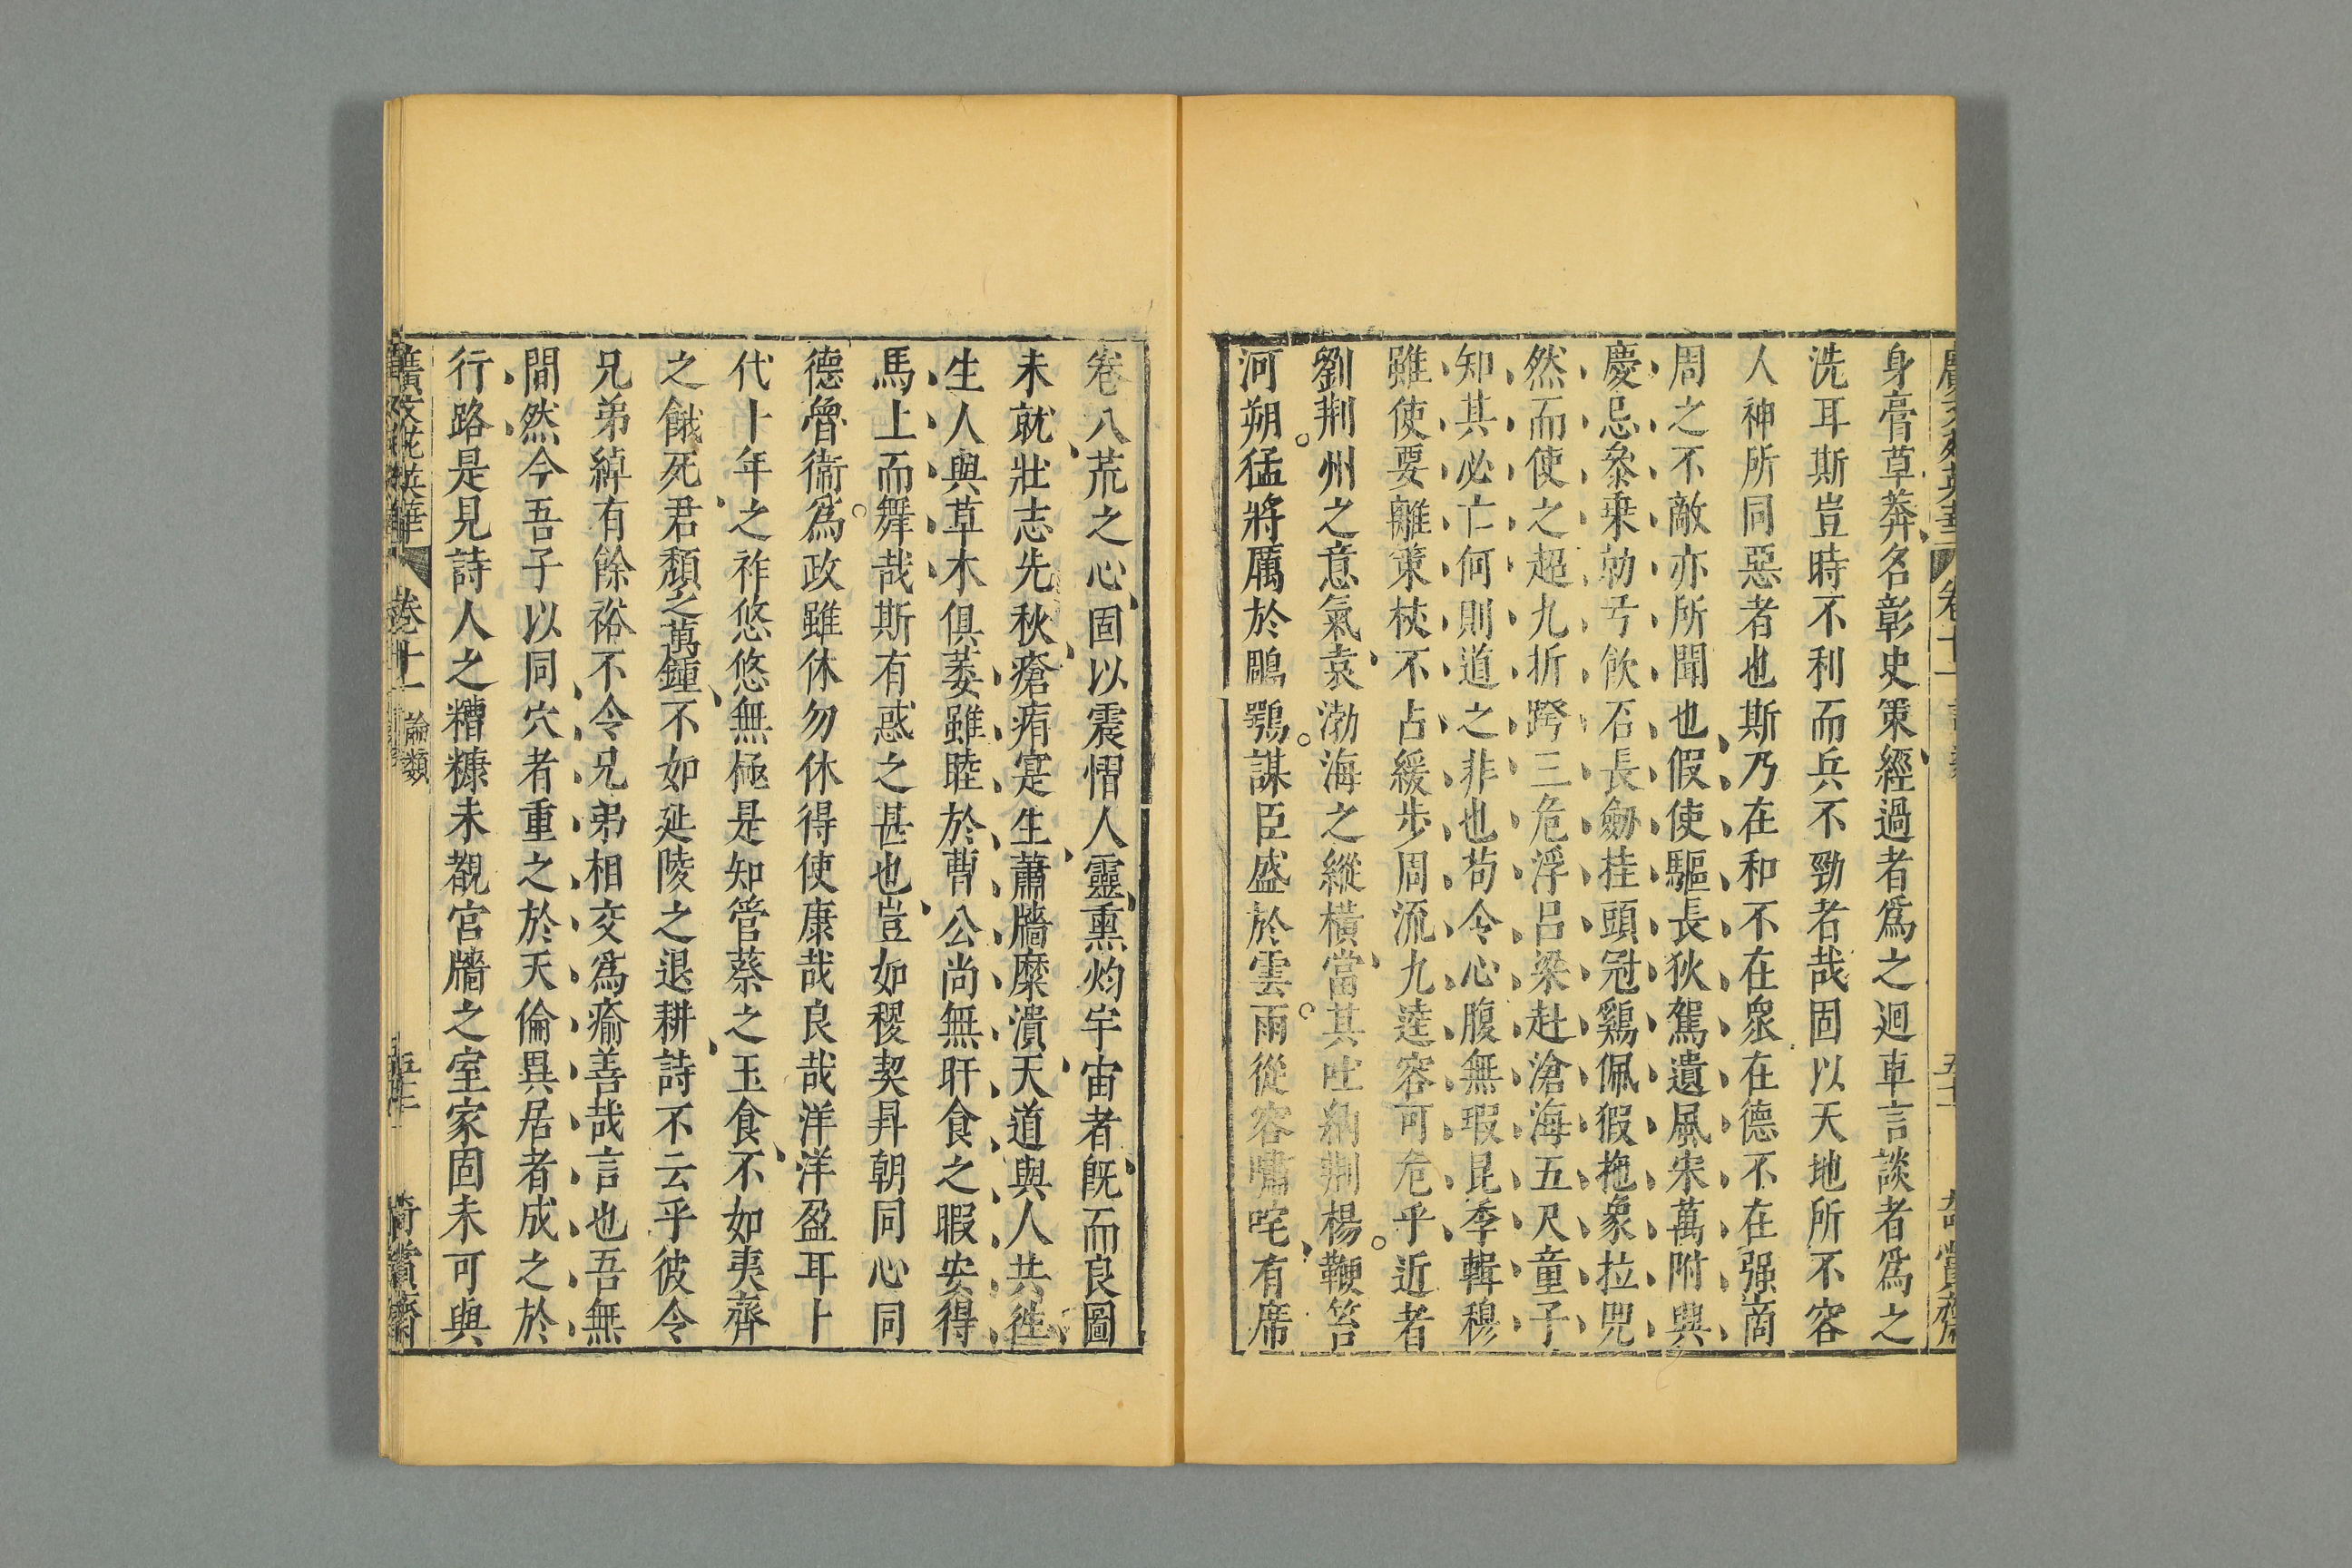 身膏草莽名彰史策經過者爲之迴車言談者爲之
洗耳斯豈時不利而兵不勁者哉固以天地所不容
人神所同惡者也斯乃在和不在衆在德不在强商
周之不敵亦所聞也假使驅長狄駕遺風宋萬附輿
慶忌叅乗勑弓飲石長劒挂頭冠鷄佩猳拖象拉兕
然而使之超九折跨三危浮吕梁赴滄海五尺童子
知其必亡何則道之非也茍令心腹無瑕昆季輯穆
雖使要離策杖不占緩步周流九逵容可危乎近者
劉荆州之意氣袁渤海之縱橫當其吐納荆楊鞭笞
河朔猛將厲於鵰鶚謀臣盛於雲雨從容嘯咤有席
卷八荒之心固以震慴人靈熏灼宇宙者旣而良圖
未就壯志先秋瘡痏寔生蕭牆糜潰天道與人共徃
生人與草木俱萎雖睦於曹公尚無旰食之暇安得
馬上而舞哉斯有惑之甚也豈如稷契昇朝同心同
德魯衞爲政雖休勿休得使康哉良哉洋洋盈耳卜
代卜年之祚悠悠無極是知管蔡之玉食不如夷齊
之餓死君頽之萬鍾不如延陵之退耕詩不云乎彼令
兄弟綽有餘裕不令兄弟相交爲瘉善哉言也吾無
間然今吾子以同穴者重之於天倫異居者成之於
行路是見詩人之糟糠未覩宫牆之室家固未可與
廣文苑英華 卷十一 論類 五十二 倚賞齋